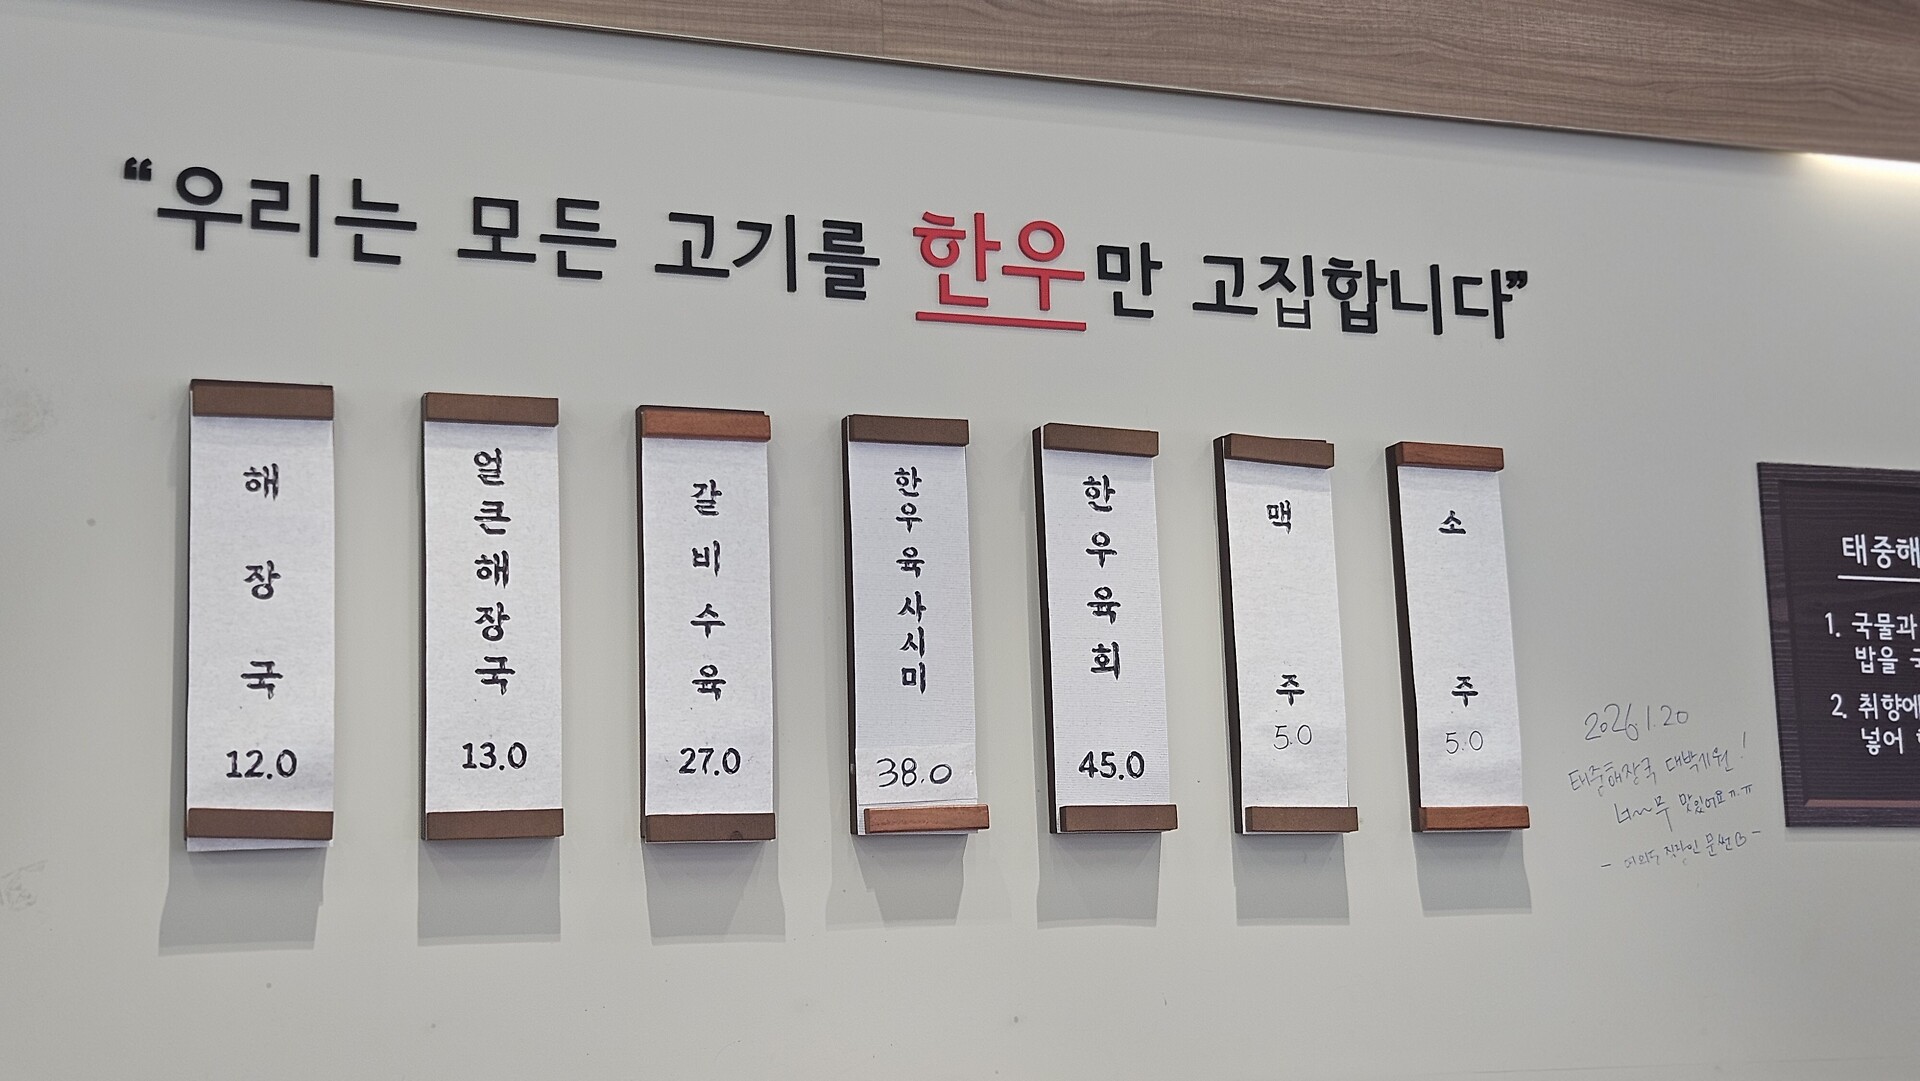 “우리는 모든 고기를 한우만 고집합니다”
해장국
12.0
얼큰해장국
13.0
갈비수육
27.0
한우육사시미
38.0
한우육회
45.0
맥주
5.0
소주
5.0
2026.1.20
태중해장국 대박기원!
너~~무 맛있어요ㅠㅠ
태중해
1. 국물과
밥을
2. 취향에
넣어